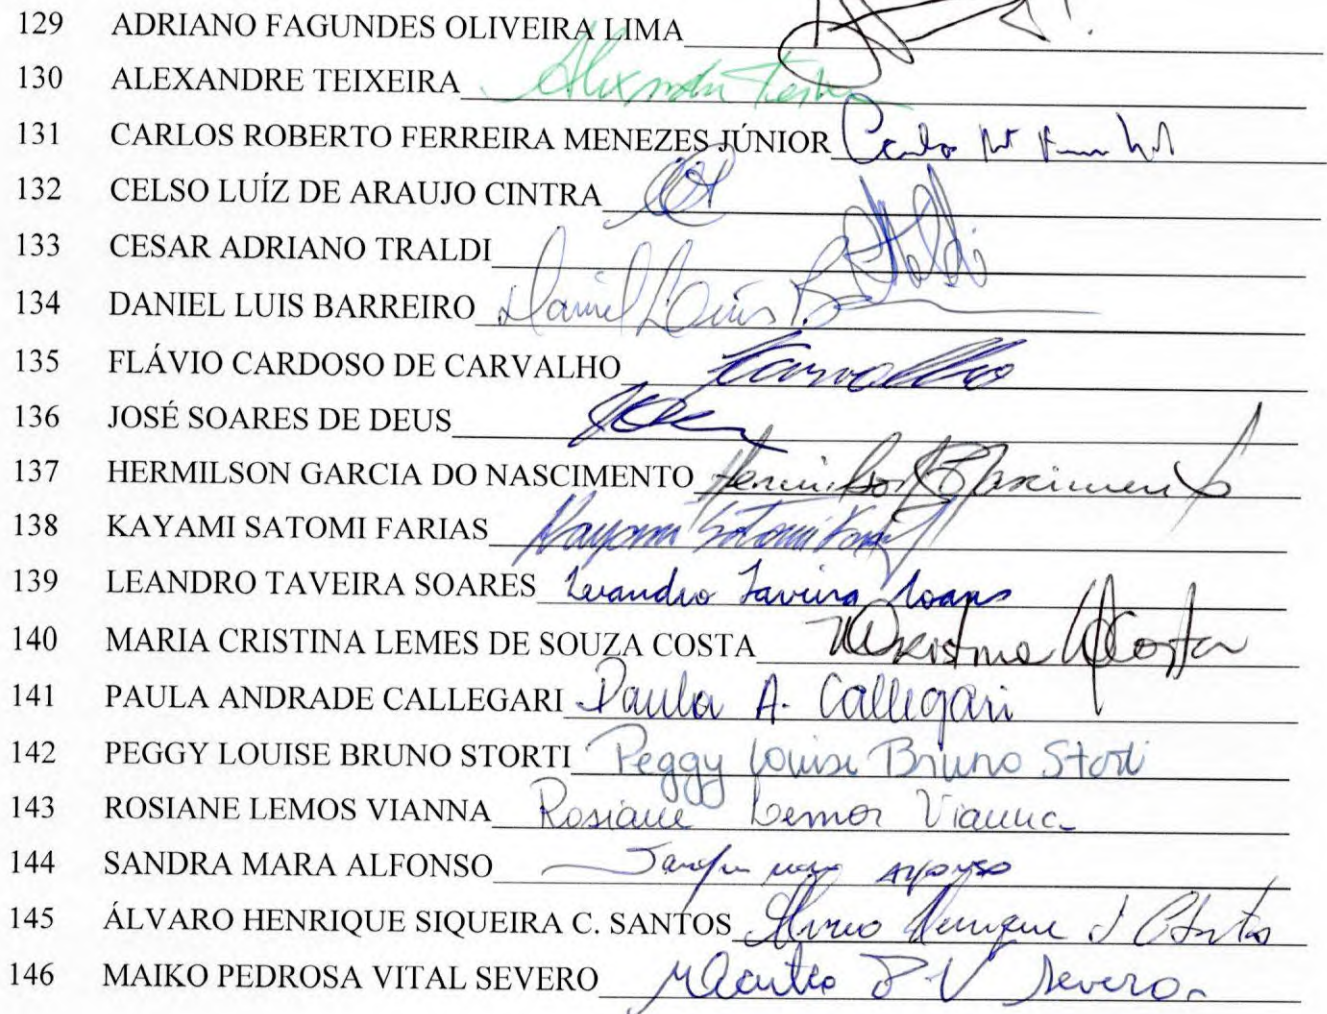 129 ADRIANO FAGUNDES OLIVEIRA LIMA
130 ALEXANDRE TEIXEIRA
131 CARLOS ROBERTO FERREIRA MENEZES JÚNIOR
132 CELSO LUÍZ DE ARAUJO CINTRA
133 CESAR ADRIANO TRALDI Traldi
134 DANIEL LUIS BARREIRO Daniel Luis
135 FLÁVIO CARDOSO DE CARVALHO Carvalho
136 JOSÉ SOARES DE DEUS
137 HERMILSON GARCIA DO NASCIMENTO Hermilson G Nascimento
138 KAYAMI SATOMI FARIAS Kayami Satomi Farias
139 LEANDRO TAVEIRA SOARES Leandro Taveira Soares
140 MARIA CRISTINA LEMES DE SOUZA COSTA MCristina Costa
141 PAULA ANDRADE CALLEGARI Paula A. Callegari
142 PEGGY LOUISE BRUNO STORTI Peggy Louise Bruno Storti
143 ROSIANE LEMOS VIANNA Rosiane Lemos Vianna
144 SANDRA MARA ALFONSO
145 ÁLVARO HENRIQUE SIQUEIRA C. SANTOS Álvaro Henrique S C Santos
146 MAIKO PEDROSA VITAL SEVERO Maiko P V Severo